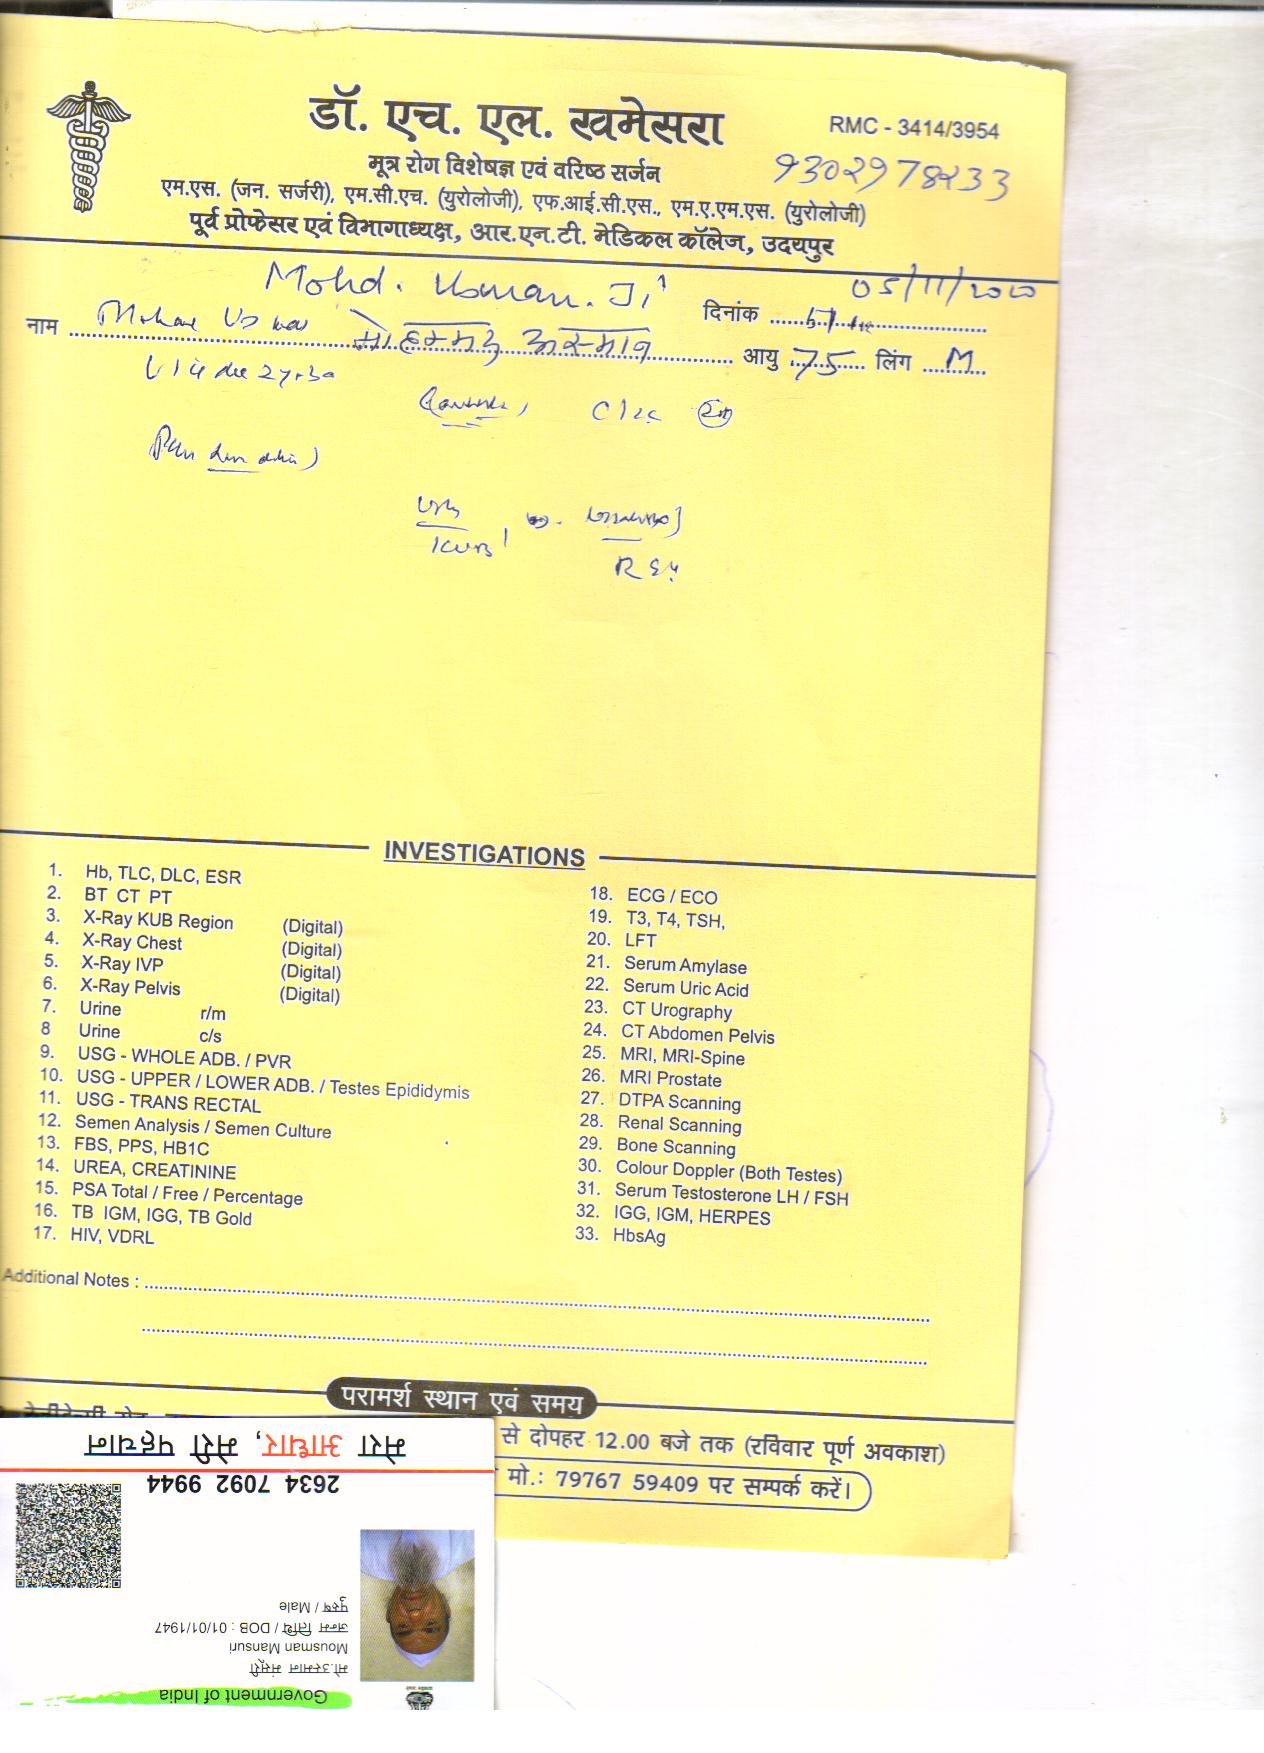 डॉ. एच. एल. खमेसरा
RMC - 3414/3954
मूत्र रोग विशेषज्ञ एवं वरिष्ठ सर्जन
एम.एस. (जन. सर्जरी), एम.सी.एच. (युरोलोजी), एफ.आई.सी.एस., एम.ए.एम.एस. (युरोलोजी)
पूर्व प्रोफेसर एवं विभागाध्यक्ष, आर.एन.टी. मेडिकल कॉलेज, उदयपुर
Mohd. Usman. Ji
05/11/2020
दिनांक
नाम मोहम्मद उस्मान आयु 75 लिंग M
INVESTIGATIONS
1. Hb, TLC, DLC, ESR
2. BT CT PT
3. X-Ray KUB Region (Digital)
4. X-Ray Chest (Digital)
5. X-Ray IVP (Digital)
6. X-Ray Pelvis (Digital)
7. Urine r/m
8 Urine c/s
9. USG - WHOLE ADB. / PVR
10. USG - UPPER / LOWER ADB. / Testes Epididymis
11. USG - TRANS RECTAL
12. Semen Analysis / Semen Culture
13. FBS, PPS, HB1C
14. UREA, CREATININE
15. PSA Total / Free / Percentage
16. TB IGM, IGG, TB Gold
17. HIV, VDRL
18. ECG / ECO
19. T3, T4, TSH,
20. LFT
21. Serum Amylase
22. Serum Uric Acid
23. CT Urography
24. CT Abdomen Pelvis
25. MRI, MRI-Spine
26. MRI Prostate
27. DTPA Scanning
28. Renal Scanning
29. Bone Scanning
30. Colour Doppler (Both Testes)
31. Serum Testosterone LH / FSH
32. IGG, IGM, HERPES
33. HbsAg
Additional Notes :
परामर्श स्थान एवं समय
से दोपहर 12.00 बजे तक (रविवार पूर्ण अवकाश)
मो.: 79767 59409 पर सम्पर्क करें।
Government of India
मो.उस्मान मंसूरी
Mousman Mansuri
जन्म तिथि / DOB : 01/01/1947
पुरुष / Male
2634 7092 9944
मेरा आधार, मेरी पहचान